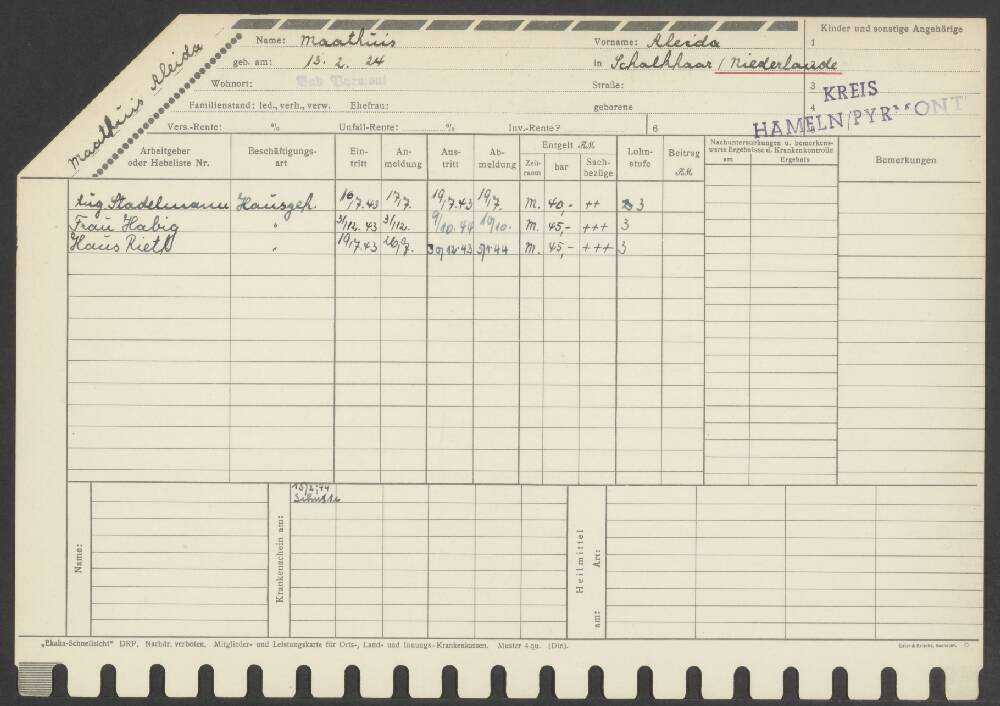 Maathuis Aleida
Name: Maathuis Vorname: Aleida
Kinder und sonstige Angehörige
geb. am: 13. 2. 24 in Schalkhaar / Niederlande
1
Wohnort: Bad Pyrmont Straße: 3
KREIS
HAMELN/PYRMONT
Familienstand: led., verh., verw. Ehefrau: geborene 4
Vers.-Rente: % Unfall-Rente: % Inv.-Rente? 6
Arbeitgeber oder Hebeliste Nr. Beschäftigungsart Eintritt Anmeldung Austritt Abmeldung Entgelt RM Zeitraum bar Sachbezüge Lohnstufe Beitrag RM Nachuntersuchungen u. bemerkenswerte Ergebnisse d. Krankenkontrolle am Ergebnis Bemerkungen
Aug. Stadelmann Hausgeh. 16/7.43 17/7. 19/7.43 19/7. M. 40,- ++ 3
Frau Habig " 3/12.43 3/12. 9/10.44 10/10. M. 45,- +++ 3
Haus Rieth " 19/7.43 26/7. 30/12 43 3/1 44 M. 45,- +++ 3
Name:
Krankenschein am:
15/2.44
Heilmittel
Art:
am:
„Ekaha-Schnellsicht" DRP. Nachdr. verboten. Mitglieder- und Leistungskarte für Orts-, Land- und Innungs-Krankenkassen. Muster 4 qu. (Din).